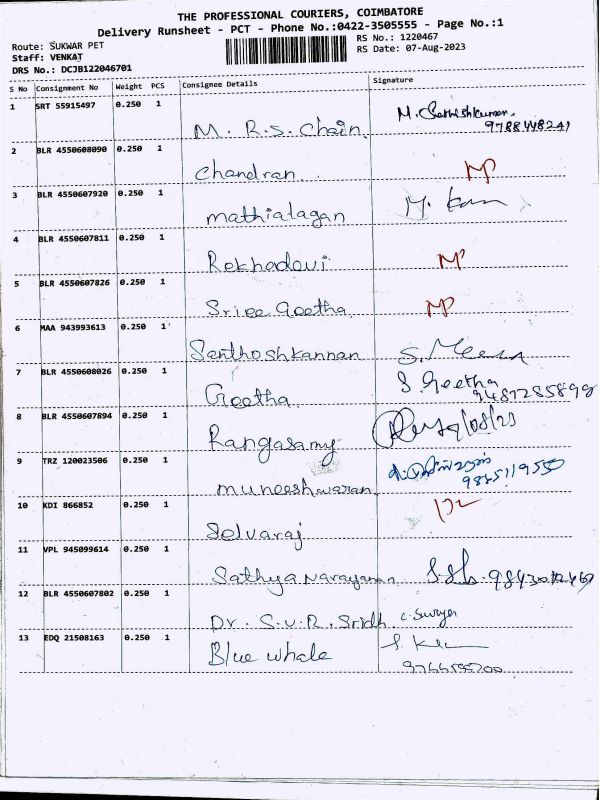 THE PROFESSIONAL COURIERS, COIMBATORE
Delivery Runsheet - PCT - Phone No.:0422-3505555 - Page No.:1
Route: SUKWAR PET
RS No.: 1220467
Staff: VENKAT
RS Date: 07-Aug-2023
DRS No.: DCJB122046701
S No Consignment No Weight PCS Consignee Details Signature
1 SRT 55915497 0.250 1
M. R.S. Chain
M. Sathishkumar.
2 BLR 4550608090 0.250 1
Chandran
NP
3 BLR 4550607920 0.250 1
mathialagan
4 BLR 4550607811 0.250 1
Rekhadevi
NP
5 BLR 4550607826 0.250 1
Sriee Geetha
NP
6 MAA 943993613 0.250 1
Senthoshkannan
S. Meena
7 BLR 4550608026 0.250 1
Geetha
S. Geetha
9487285898
8 BLR 4550607894 0.250 1
Rangasamy
9 TRZ 120023506 0.250 1
muneeshwaran
10 KDI 866852 0.250 1
Selvaraj
11 VPL 945099614 0.250 1
Sathya Narayanan
12 BLR 4550607802 0.250 1
Dr. S.V.R. Sridh
13 EDQ 21508163 0.250 1
Blue whale